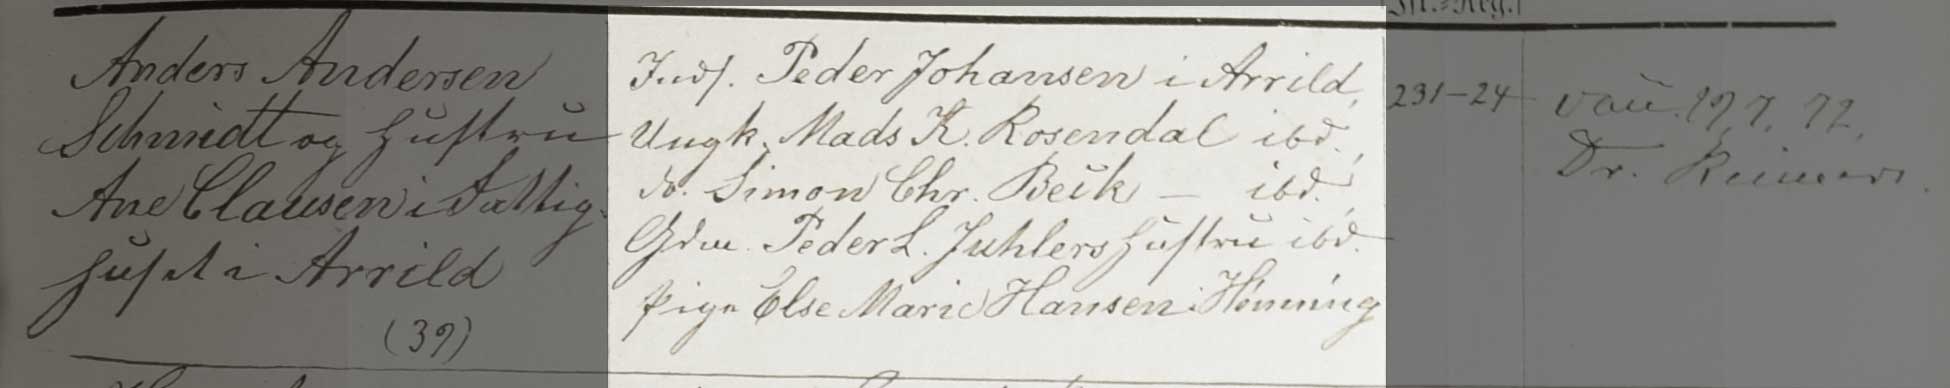 Jft.-Reg.
Anders Andersen
Schmidt og Hustru
Ane Clausen i Fattig-
huset i Arrild
(39)
Inds. Peder Johansen i Arrild,
Ungk. Mads K. Rosendal ibd.,
do. Simon Chr. Beik – ibd.,
Gdm. Peder L. Juhlers Hustru ibd.
Pige Else Marie Hansen i Hönning
231-24
Dr. Reimers.